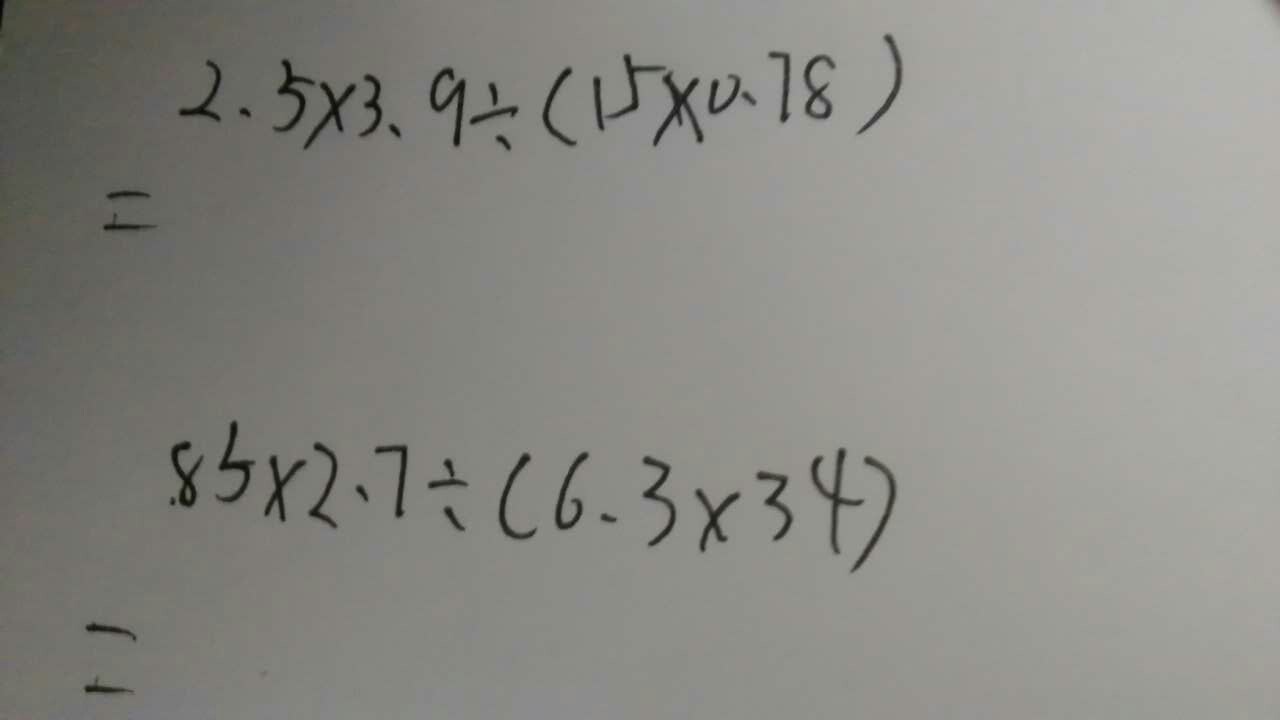 2.5×3.9÷(15×0.78)
=
85×2.7÷(6.3×34)
=